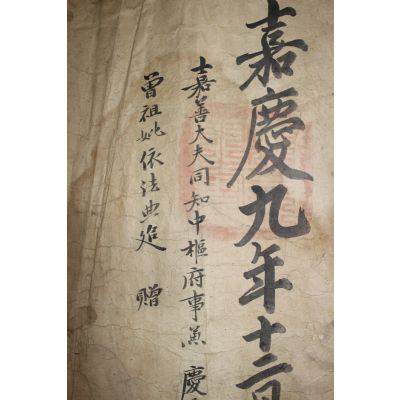 嘉慶九年十二月
士嘉善大夫同知中樞府事兼 慶
曾祖妣依法典追 贈